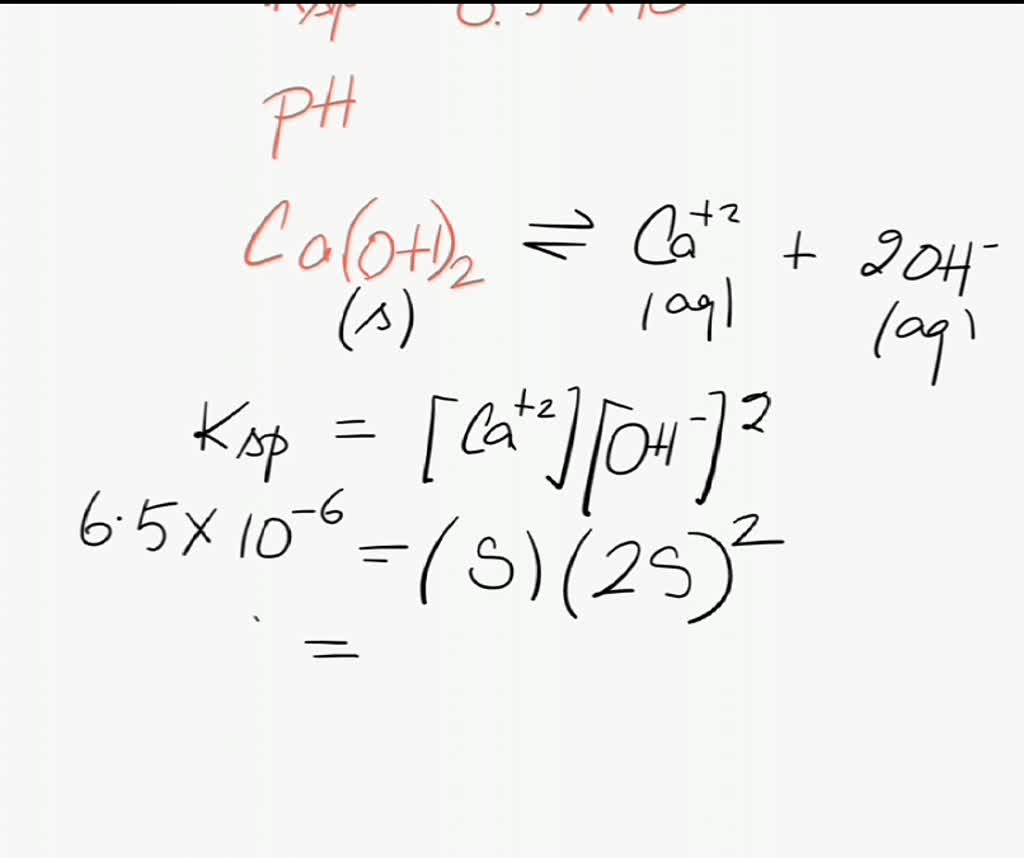 PH
Ca(OH)2 ⇌ Ca+2 + 2OH-
(s) (aq) (aq)
Ksp = [Ca+2][OH-]2
6.5 × 10-6 = (S)(2S)2
=